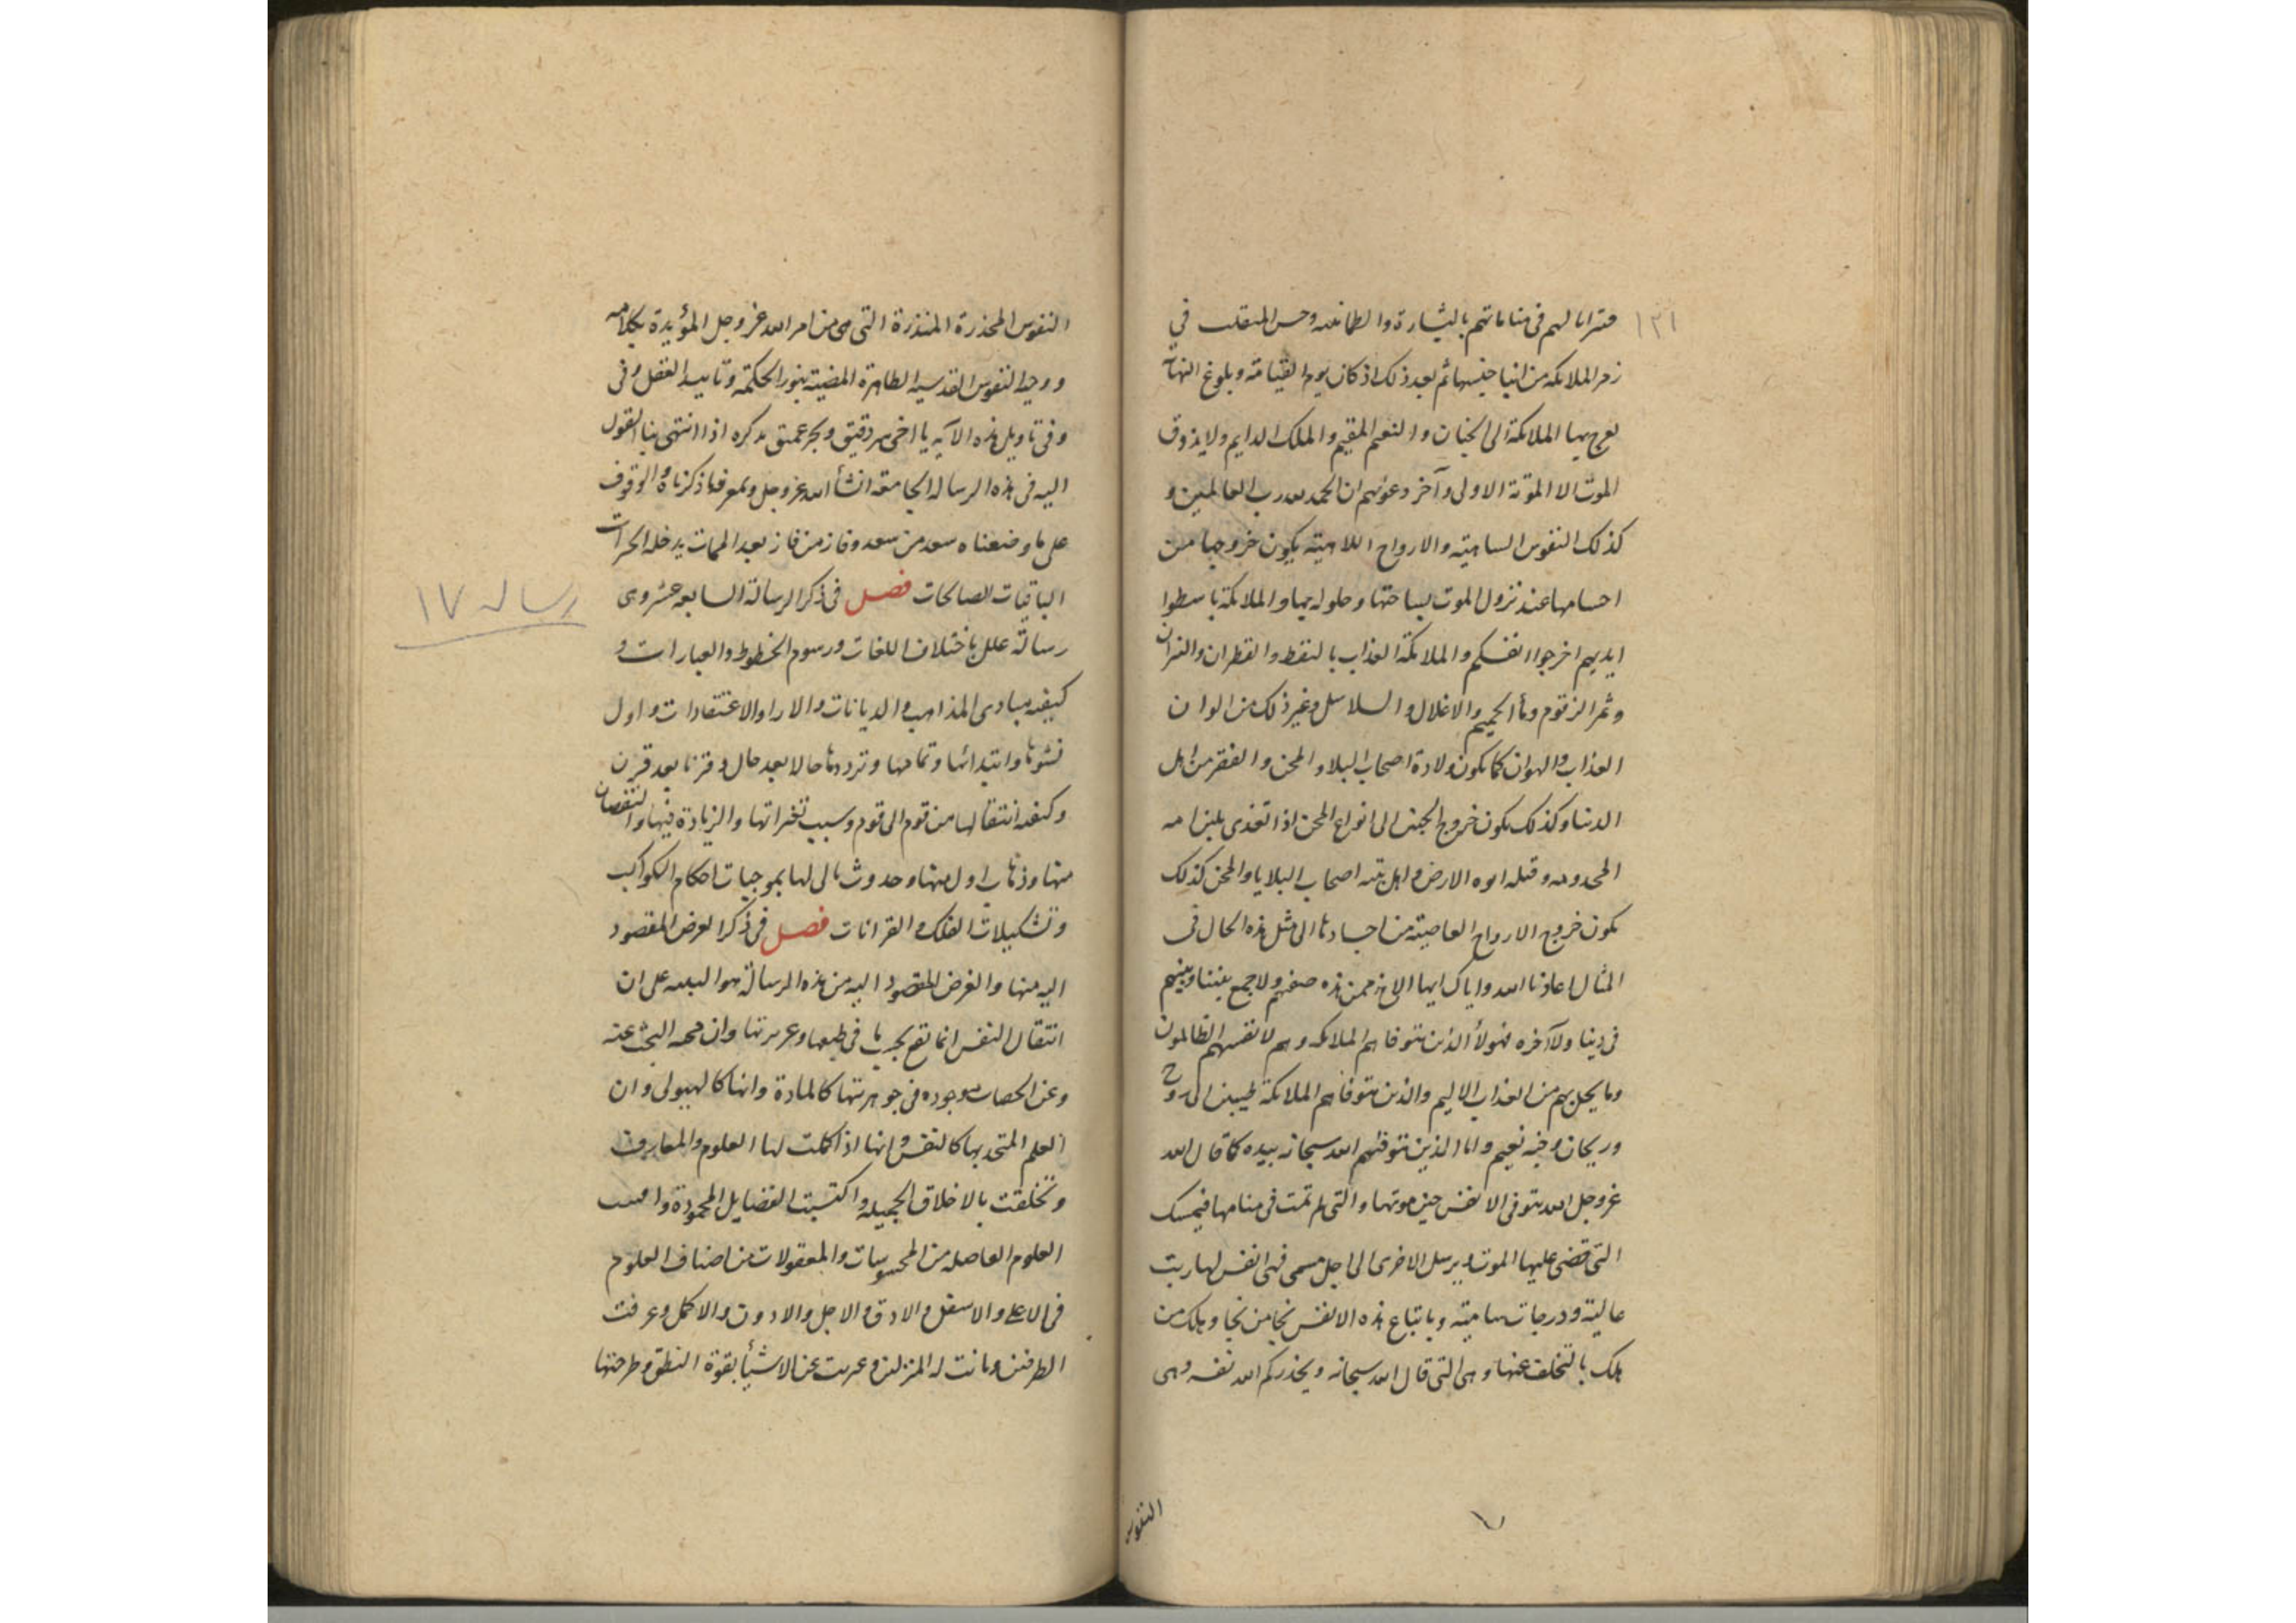 ١٣١
لهم فى مناماتهم بالبشارة والطمانينه وحسن المنقلب في
زمر الملائكه من ابنا جنسها ثم بعد ذلك اذ كان يوم القيامة وبلوغ النهاية
تعرج بها الملائكة الى الجنان والنعيم المقيم والملك الدايم ولا يذوق
الموت الا الموتة الاولى وآخر دعوٰيهم ان الحمد لله رب العالمين و
كذلك النفوس الساهيته والارواح اللاهيته يكون خروجها من
اجسامها عند نزول الموت بساحتها وحلوله بها والملائكة باسطوا
ايديهم اخرجوا انفسكم والملائكة العذاب بالنفط والقطران والنيران
وثمر الزقوم وماٴ الحميم والاغلال والسلاسل وغير ذلك من الوان
العذاب والهوان كما يكون ولادة اصحاب البلاء والمحن والفقر من اهل
الدنيا وكذلك يكون خروج الجنين الى انواع المحن اذا تغذى بلبن امه
وقبله ابوه الارض واهل بيته اصحاب البلايا والمحن كذلك
يكون خروج الارواح العاصيته من اجسادها الى مثل هذه الحال فى
المثال اعاذنا الله واياك ايها الاخ ممن هذه صفتهم ولا جمع بيننا وبينهم
فى دنيا ولا آخره فهولاٴ الذين تتوفاهم الملائكه وهم لانفسهم الظالمون
وما يحل بهم من العذاب الاليم والذين تتوفاهم الملائكة طيبين الى روح
وريحان وجنه نعيم واما الذين تتوفيهم الله سبحانه بيده كما قال الله
عز وجل الله يتوفى الانفس حين موتها والتى لم تمت فى منامها فيمسك
التى قضى عليها الموت ويرسل الاخرى الى اجل مسمى فهى انفس لها رتب
عالية ودرجات سامية وباتباع هذه الانفس نجا من نجا وهلك من
هلك بالتخلف عنها وهى التى قال الله سبحانه ويحذركم الله نفسه وهى
النفوس
النفوس المحذرة المنذرة التى هى من امر الله عز وجل المؤيدة بكلامه
ووحيه النفوس القدسيه الطاهرة المضيئة بنور الحكمة وتاييد العقل وفى
وفى تاويل هذه الآيه يا اخى سر دقيق وبحر عميق نذكره اذا انتهى بنا القول
اليه فى هذه الرساله الجامعة انشأ الله عز وجل وبمعرفة ما ذكرناه والوقوف
على ما وضعناه سعد من سعد وفاز من فاز بعد الممات بدخله الخيرات
الباقيات الصالحات فصل فى ذكر الرسالة السابعه عشر وهى
رسالة علل باختلاف اللغات ورسوم الخطوط والعبارات و
رساله ١٧
كيفيه مبادى المذاهب والديانات والاراء والاعتقادات واول
نشوها وابتدائها وتمامها وترددها حالا بعد حال وقرنا بعد قرن
وكيفيه انتقالها من قوم الى قوم وسبب تغيراتها والزيادة فيها والنقصان
منها وذهاب اول منها وحدوث تالى لها بموجبات احكام الكواكب
وتشكيلات الفلك والقرانات فصل فى ذكر الغرض المقصود
اليه منها والغرض المقصود اليه من هذه الرسالة هو التنبيه على ان
انتقال النفس انما تقع بحسب ما فى طبعها وان محبه البحث عنه
وعن موجوده فى جوهريتها كالمادة وانها كالهيولى وان
العلم المتحد بها كالنفس وانها اذا كملت لها العلوم والمعارف
وتخلقت بالاخلاق الجميله واكتسبت الفضايل المحمودة
العلوم من المحسوسات والمعقولات من اصناف العلوم
فى الاعلى والاسفل والادق والاجل والادون والاكمل وعرفت
الطرفين وبانت له المنزلتين وعبرت عن الاشيأ بقوة النطق